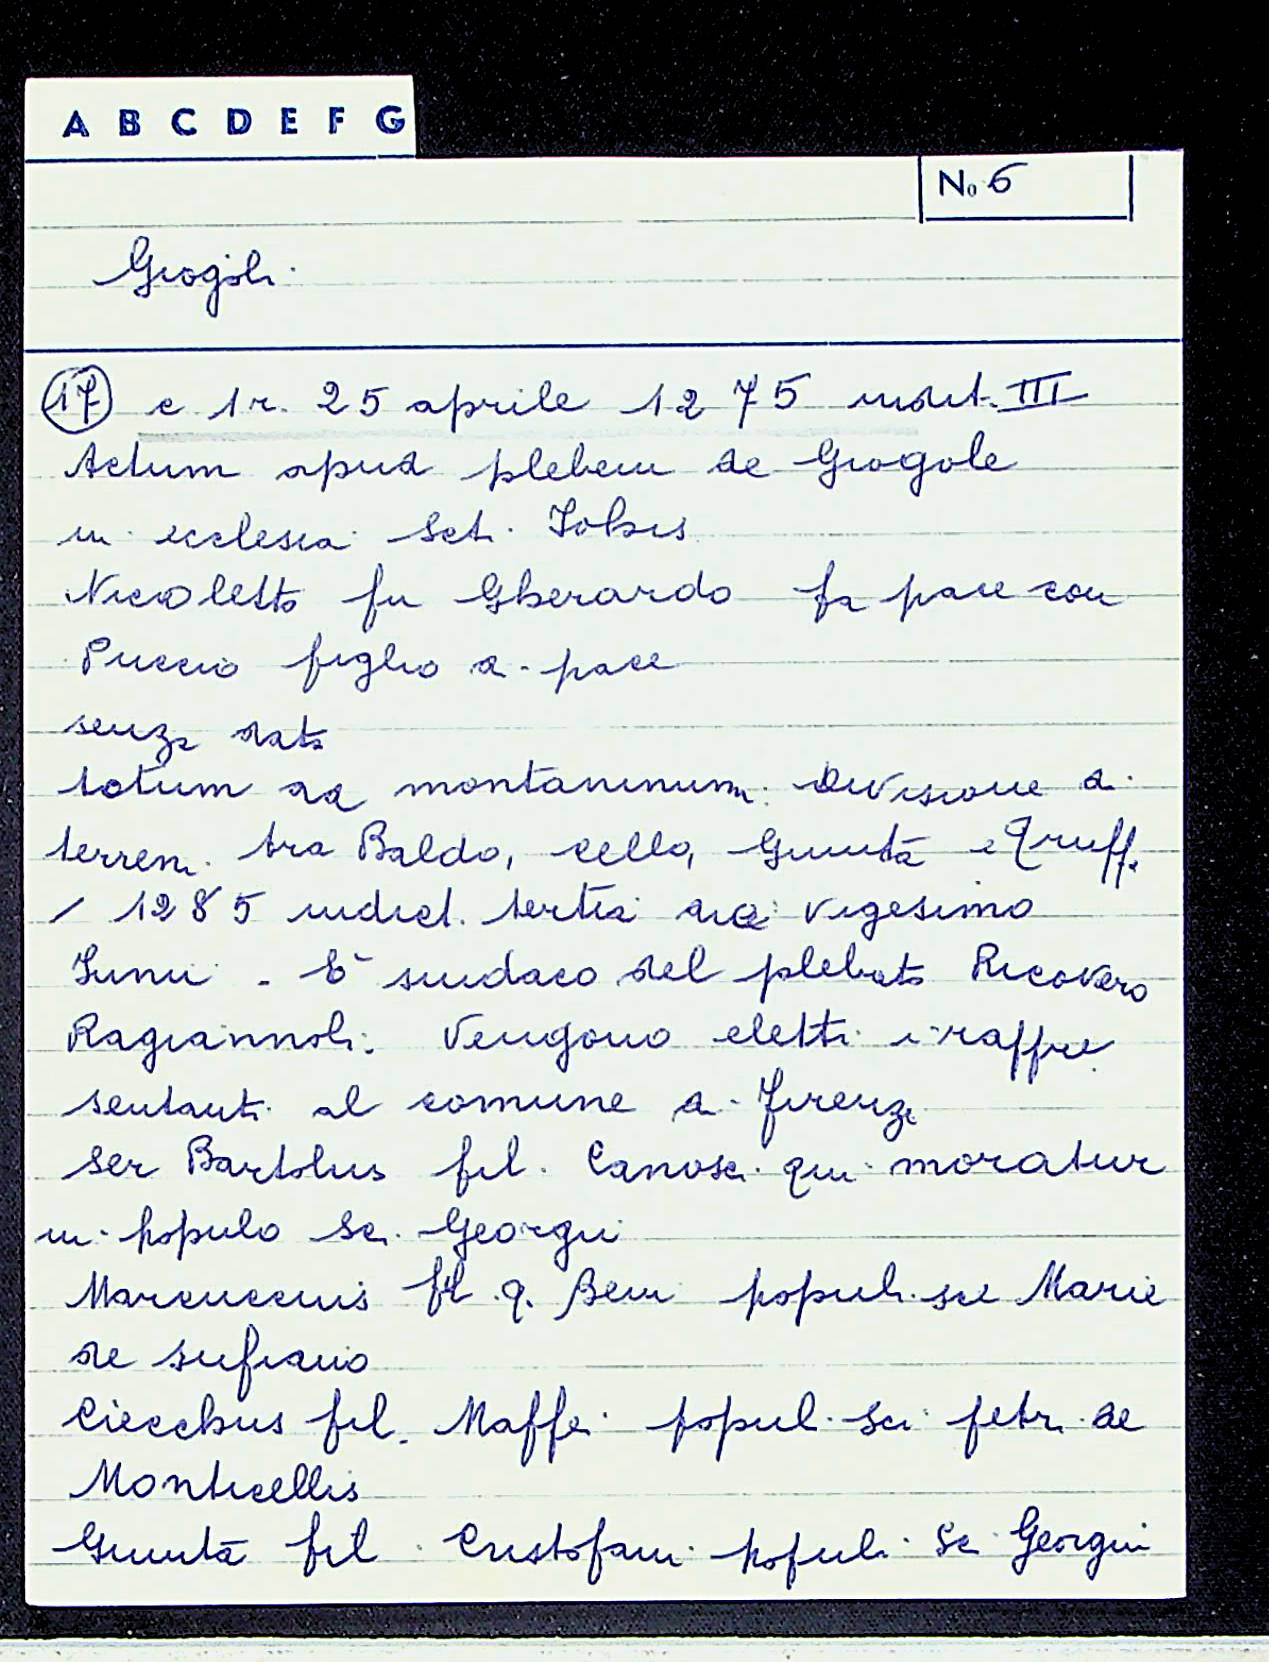 A B C D E F G
No 6
Giogoli
17 c. 1r. 25 aprile 1275 indict. III
Actum apud plebem de Giogole
in ecclesia Sct. Iohis
Nicoletto fu Gherardo fa pace con
Puccio figlio di pace
senza data
totum ad montaninum. divisione di
terren. tra Baldo, cello, Giunta e
/ 1285 indict. tertia die vigesimo
Iunii - È sindaco del plebato Ricovero
Ragiannoli. Vengono eletti i rappre
sentanti al comune di Firenze
ser Bartolus fil. Canosci qui moratur
in populo Sci. Georgii
Marcuccius fil q. Beni populi sce Marie
de sufiano
Ciecchus fil. Maffei popul. Sci petri de
Monticellis
Giunta fil. Cristofani populi Sci Georgii